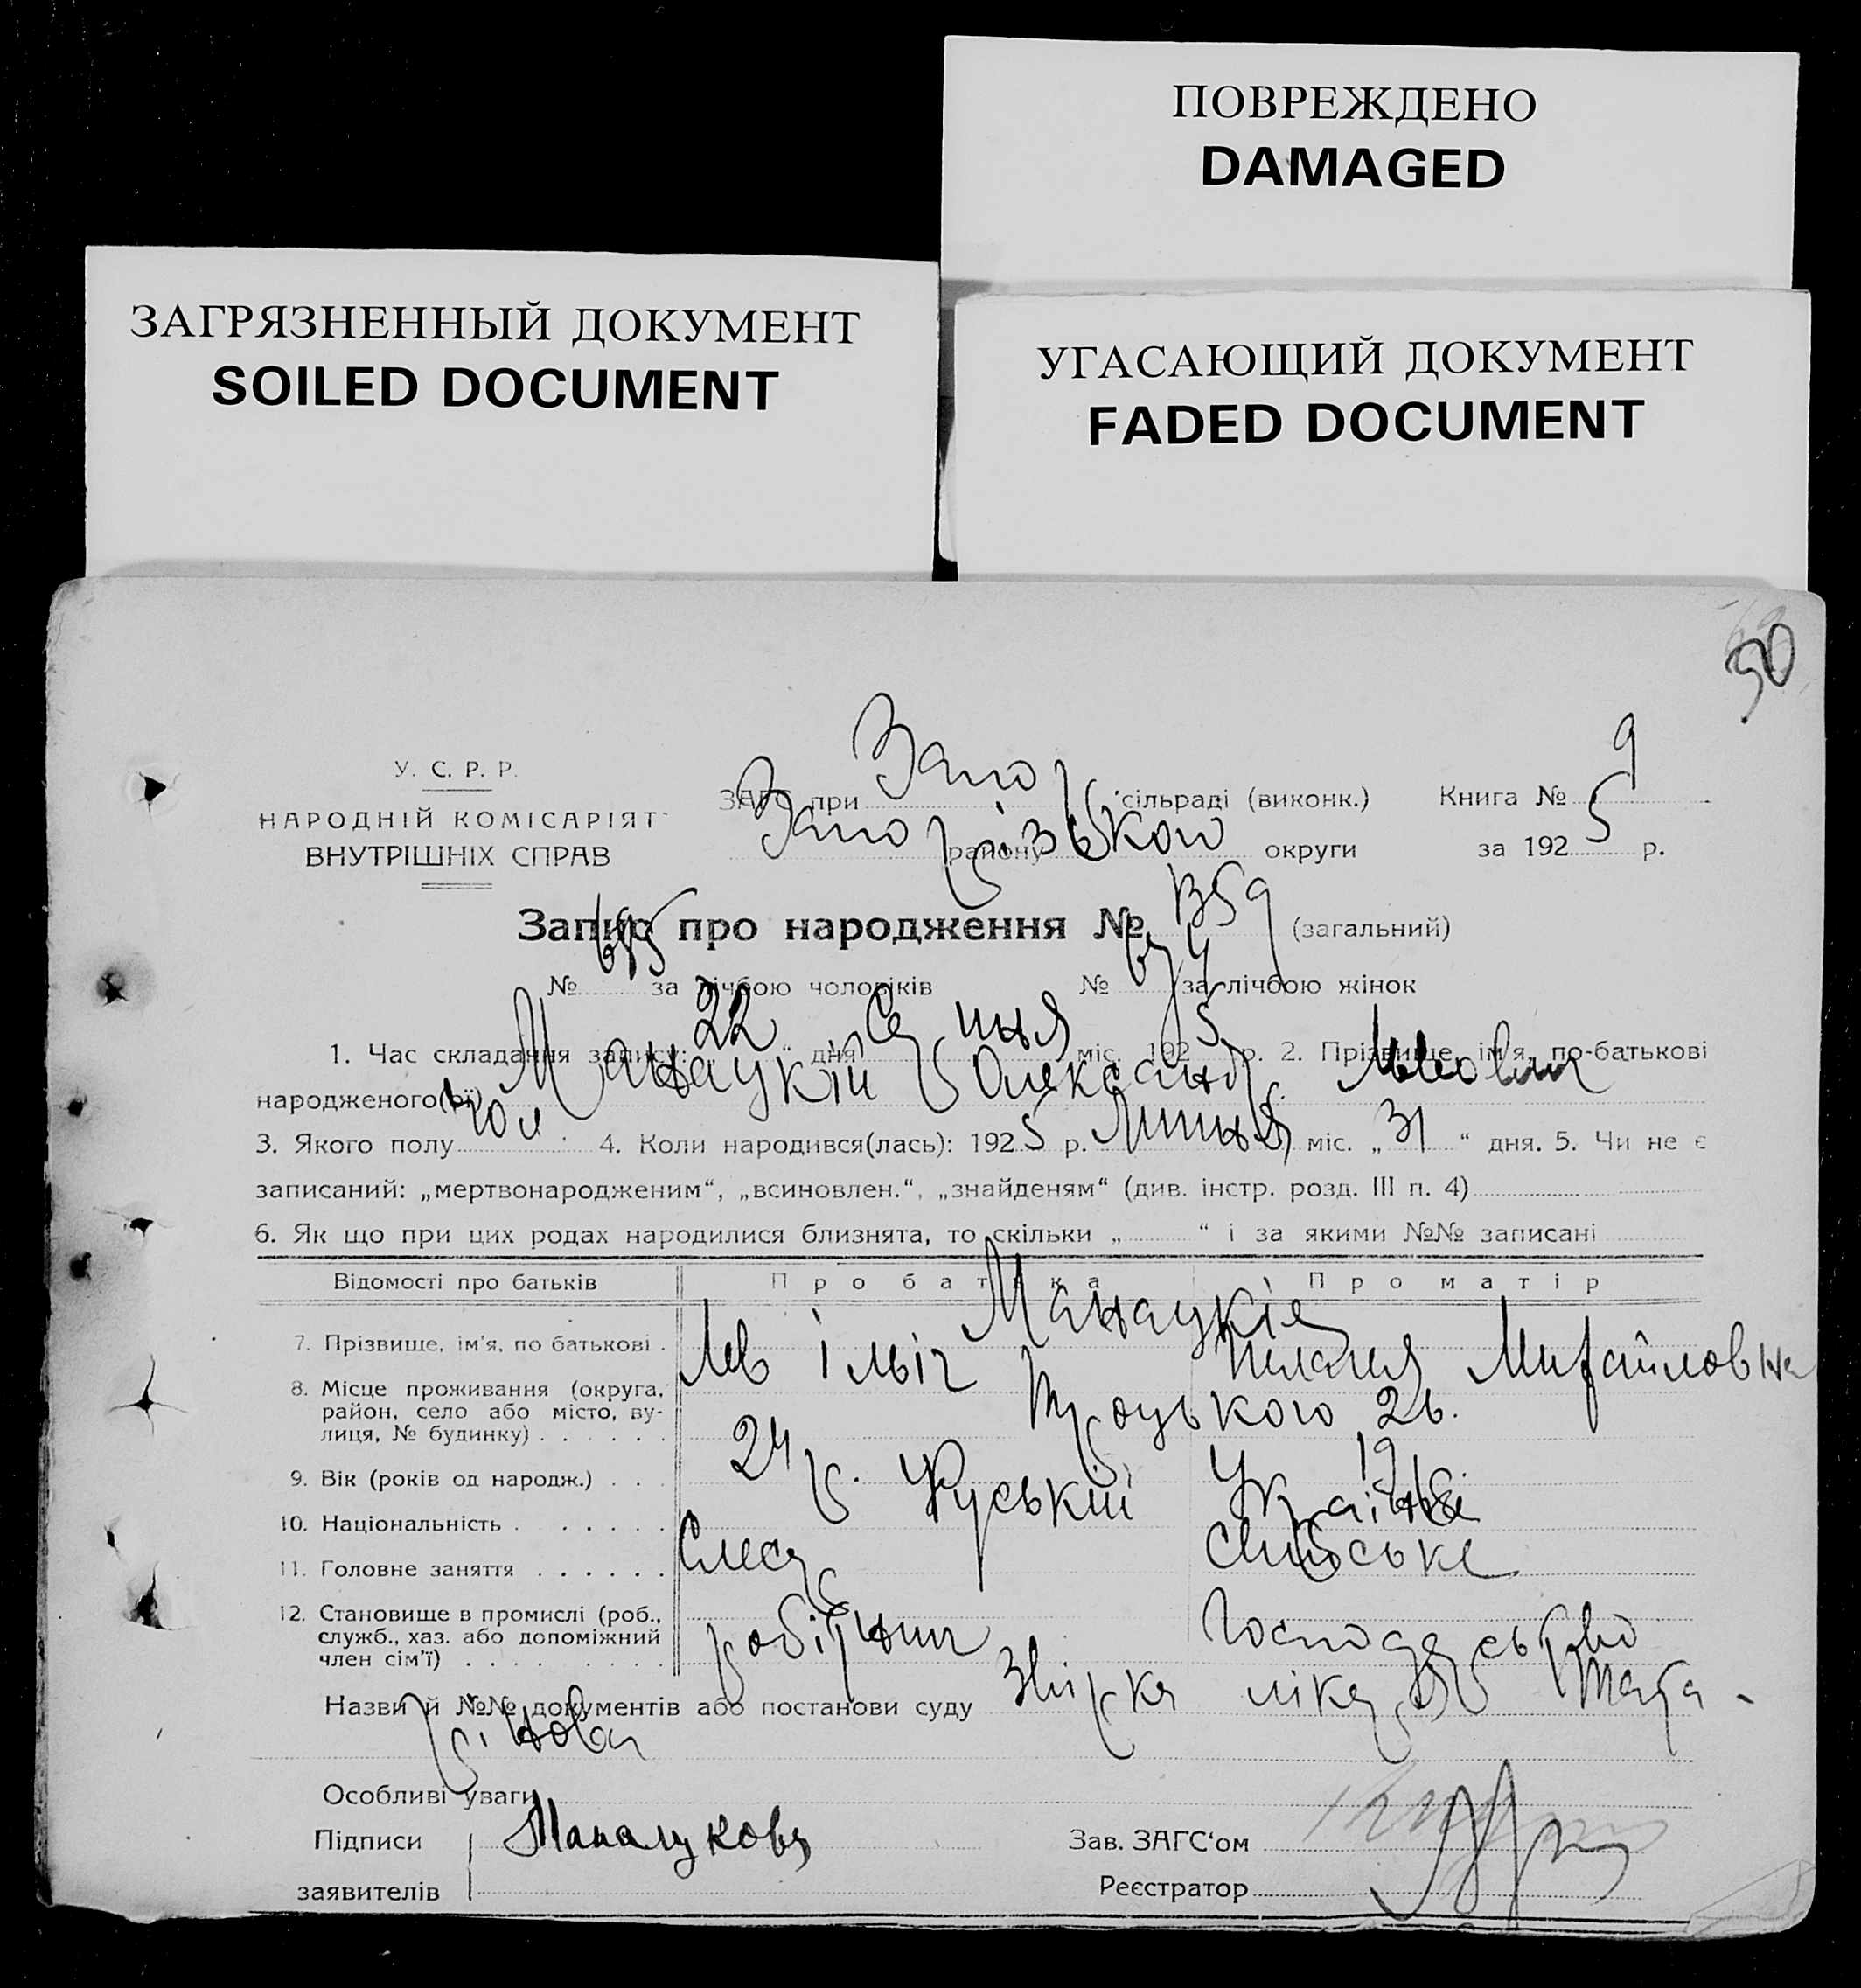 ПОВРЕЖДЕНО
DAMAGED
ЗАГРЯЗНЕННЫЙ ДОКУМЕНТ
SOILED DOCUMENT
УГАСАЮЩИЙ ДОКУМЕНТ
FADED DOCUMENT
50
У. С. Р. Р.
НАРОДНІЙ КОМІСАРІЯТ
ВНУТРІШНІХ СПРАВ
ЗАГС при Запор сільраді (виконк.) Книга № 9
району Запорізького округи за 1925 р.
Запис про народження № 1359 (загальний)
№ 685 за лічбою чоловіків № 674 за лічбою жінок
1. Час складання запису: 22 " дня Серпня міс. 1925 р. 2. Прізвище, ім'я, по-батькові
народженого(ої) Манацкій Олександр Львович
3. Якого полу чол. 4. Коли народився(лась): 1925 р. Липня міс. „ 31 “ дня. 5. Чи не є
записаний: „мертвонародженим“, „всиновлен.“, „знайденям“ (див. інстр. розд. III п. 4)
6. Як що при цих родах народилися близнята, то скільки „ “ і за якими №№ записані
Відомості про батьків Про батька Про матір
7. Прізвище, ім'я, по батькові . Манацкіє
Лев Ільіч Пелагея Михайловна
8. Місце проживання (округа, район, село або місто, вулиця, № будинку) . . . . . . Троцького 26.
9. Вік (років од народж.) . . . 24 р. 19 р.
10. Національність . . . . . . Руський Українка
11. Головне заняття . . . . . . Слесар сільське
12. Становище в промислі (роб., служб., хаз. або допоміжний член сім'ї) . . . . . . . . робітник господарство
Назви й №№ документів або постанови суду лікаря Тата-
рінова
Особливі уваги
Підписи Манацкова Зав. ЗАГС‘ом
заявителів Реєстратор